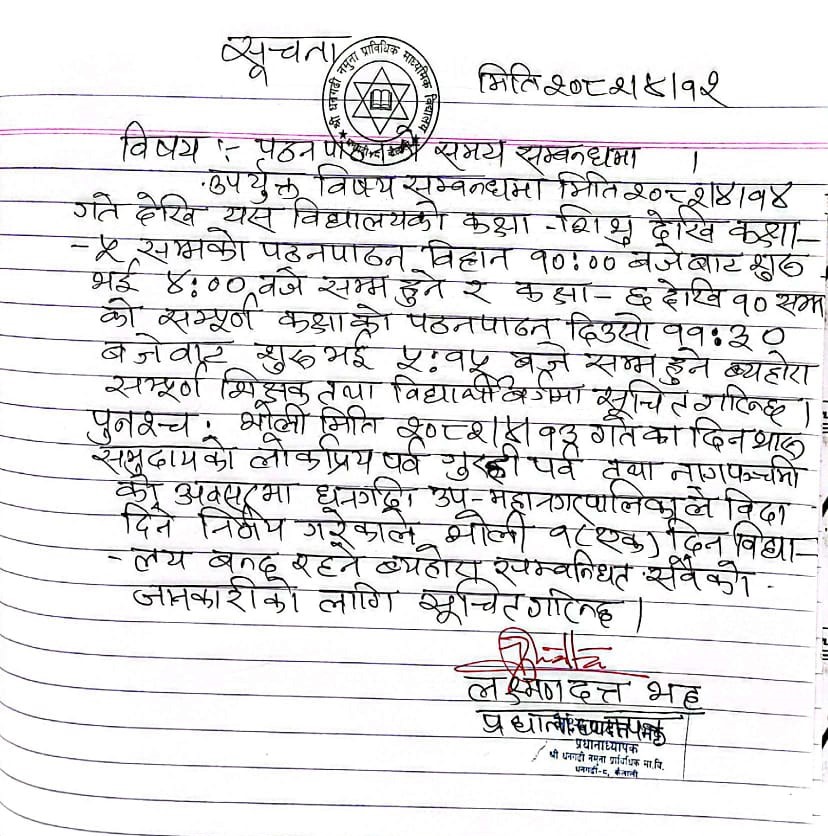 सूचना
श्री धनगढी नमुना प्राविधिक माध्यमिक विद्यालय
मिति २०८२।४।१२
विषय :- पठनपाठनको समय सम्बन्धमा ।
उपर्युक्त विषय सम्बन्धमा मिति २०८२।४।१४
गते देखि यस विद्यालयको कक्षा - शिशु देखि कक्षा-
- ५ सम्मको पठनपाठन विहान १०:०० बजेबाट शुरु
भई ४:०० वजे सम्म हुने र कक्षा- ६ देखि १० सम्म
को सम्पूर्ण कक्षाको पठनपाठन दिउसो ११:३०
बजेवाट शुरु भई ५:१५ बजे सम्म हुने ब्यहोरा
सम्पूर्ण शिक्षक तथा विद्यार्थी बर्गमा सूचित गरिन्छ।
पुनश्च : भोली मिति २०८२।४।१३ गतेका दिन थारु
समुदायको लोकप्रिय पर्व गुरही पर्व तथा नागपञ्चमी
को अवसरमा धनगढी उप-महानगरपालिकाले विदा
दिने निर्णय गरेकाले भोली १(एक) दिन विद्या-
- लय बन्द रहने ब्यहोरा सम्वन्धित सवैको
जानकारीको लागि सूचित गरिन्छ।
लक्ष्मण दत्त भट्ट
प्रधानाध्यापक
श्री धनगढी नमुना प्राविधिक मा.वि.
धनगढी-८, कैलाली